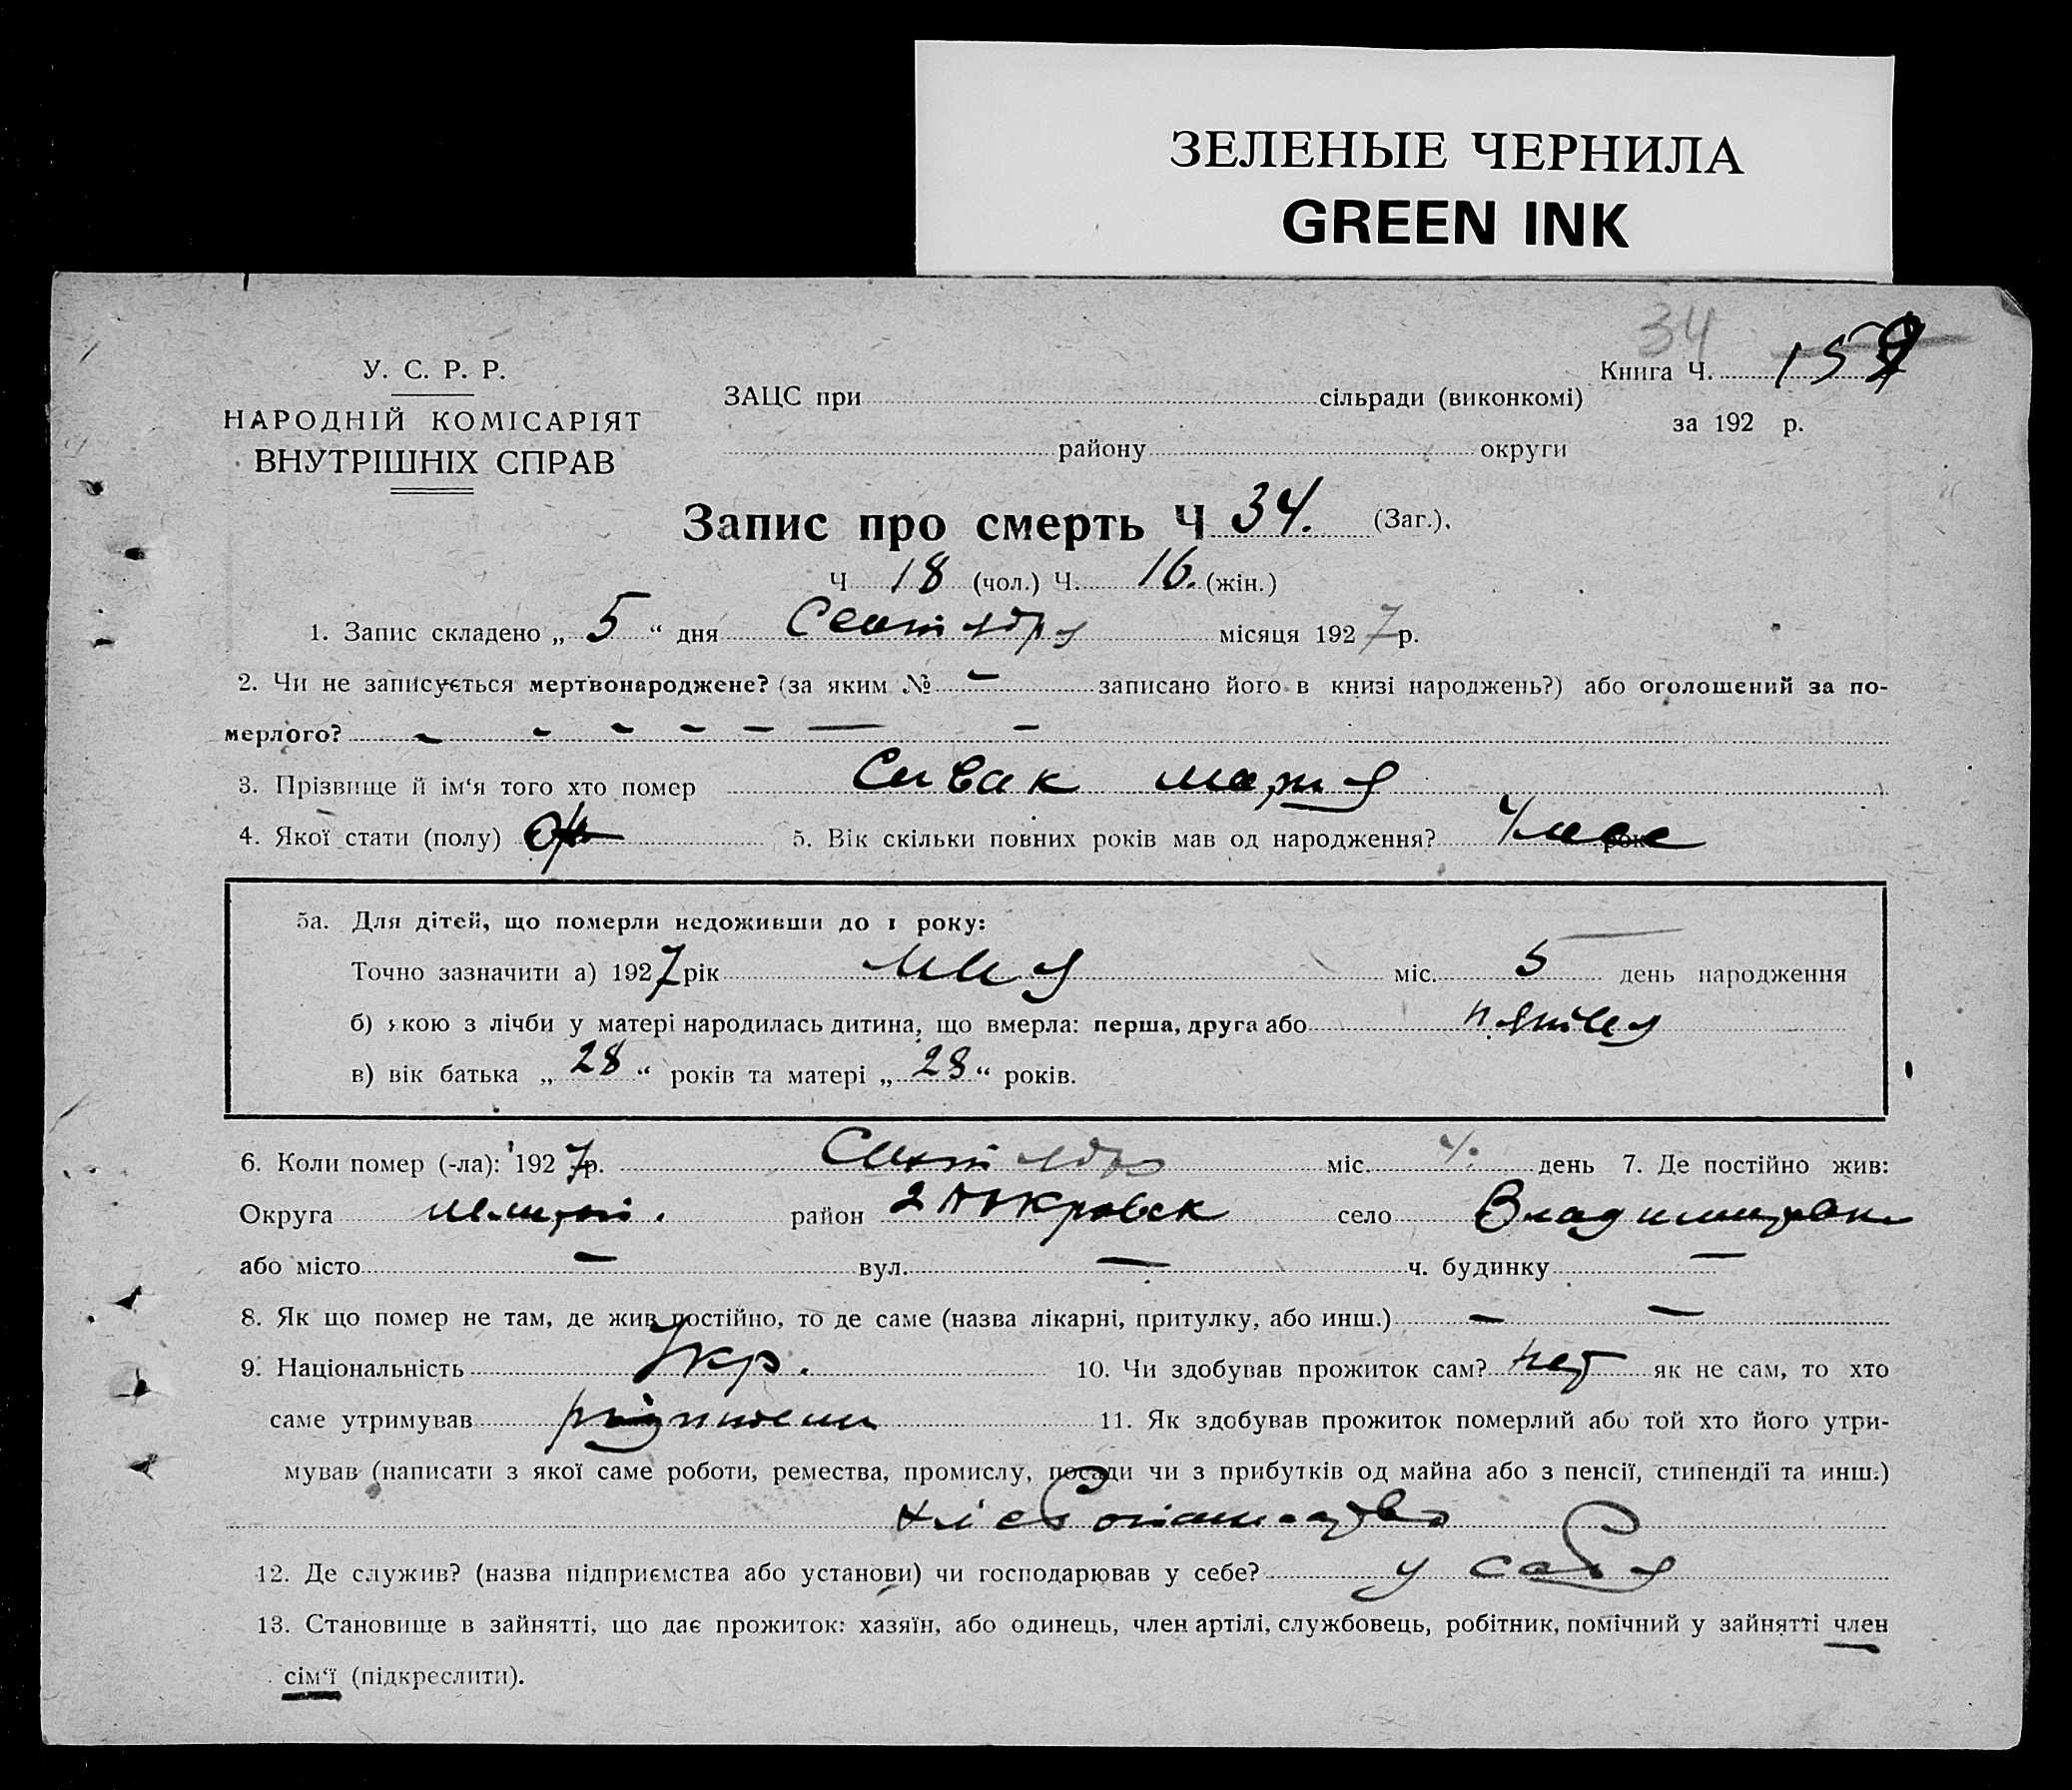 ЗЕЛЕНЫЕ ЧЕРНИЛА
GREEN INK
34
У. С. Р. Р.
НАРОДНІЙ КОМІСАРІЯТ
ВНУТРІШНІХ СПРАВ
Книга Ч. 159
за 192 р.
ЗАЦС при сільради (виконкомі)
району округи
Запис про смерть Ч 34. (Заг.).
Ч 18 (чол.) Ч. 16. (жін.)
1. Запис складено „ 5 “ дня Сентября місяця 1927 р.
2. Чи не записується мертвонароджене? (за яким № — записано його в книзі народжень?) або оголошений за по-
мерлого? - - - - — — —
3. Прізвище й ім‘я того хто помер Сивак Мария
4. Якої статі (полу) 5. Вік скільки повних років мав од народження? 4 мес
5а. Для дітей, що померли недоживши до 1 року:
Точно зазначити а) 1927 рік мая міс. 5 день народження
б) якою з лічби у матері народилась дитина, що вмерла: перша, друга або пятая
в) вік батька „ 28 “ років та матері „ 28 “ років.
6. Коли помер (-ла): 1927 р. Сентября міс. 4. день 7. Де постійно жив:
Округа район 2 Покровск село Владимировка
або місто — вул. — ч. будинку —
8. Як що помер не там, де жив постійно, то де саме (назва лікарні, притулку, або инш.) — —
9. Національність Укр. 10. Чи здобував прожиток сам? нет як не сам, то хто
саме утримував 11. Як здобував прожиток померлий або той хто його утри-
мував (написати з якої саме роботи, ремества, промислу, посади чи з прибутків од майна або з пенсії, стипендії та инш.)
12. Де служив? (назва підприємства або установи) чи господарював у себе? у себя
13. Становище в зайнятті, що дає прожиток: хазяїн, або одинець, член артілі, службовець, робітник, помічний у зайнятті член
сім‘ї (підкреслити).